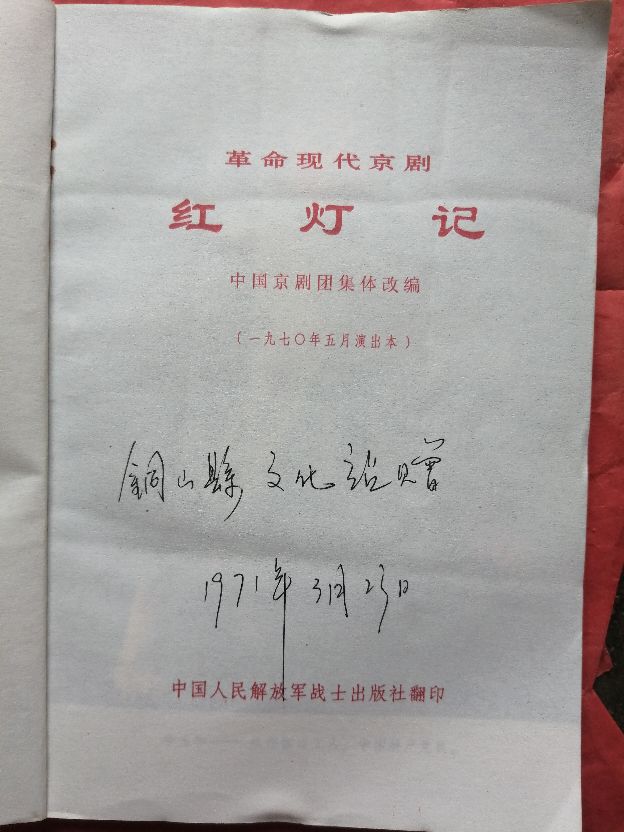 革命现代京剧
红灯记
中国京剧团集体改编
(一九七〇年五月演出本)
銅山縣文化站赠
1971年3月23日
中国人民解放军战士出版社翻印